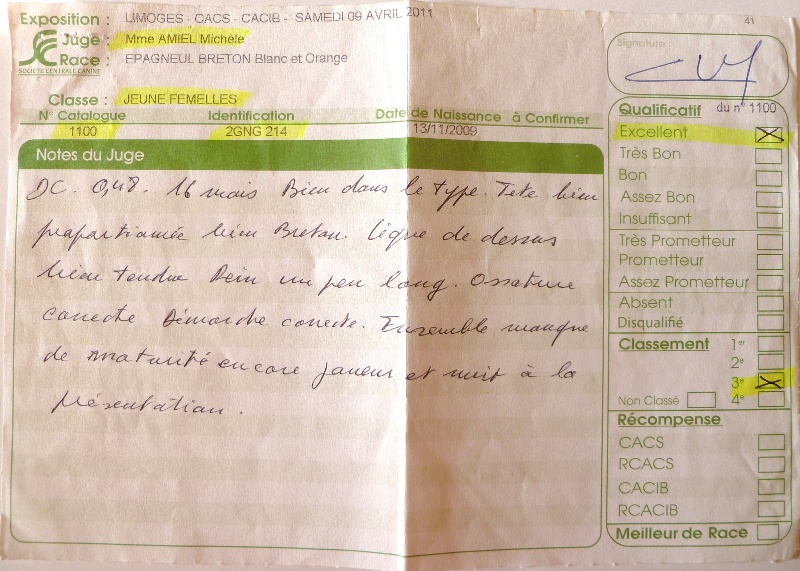 41
Exposition : LIMOGES - CACS - CACIB - SAMEDI 09 AVRIL 2011
Juge : Mme AMIEL Michèle
Race : EPAGNEUL BRETON Blanc et Orange
SOCIÉTÉ CENTRALE CANINE
Classe : JEUNE FEMELLES
N° Catalogue Identification Date de Naissance à Confirmer
1100 2GNG 214 13/11/2009
Notes du Juge
DC. 0,48. 16 mois Bien dans le type. Tete bien
proportionnée bien Breton. Ligne de dessus
bien tendue Rein un peu long. Ossature
correcte Démarche correcte. Ensemble manque
de maturité encore joueur et nuit à la
présentation.
Signature :
Qualificatif du n° 1100
Excellent
Très Bon
Bon
Assez Bon
Insuffisant
Très Prometteur
Prometteur
Assez Prometteur
Absent
Disqualifié
Classement 1er
2e
3e
Non Classé 4e
Récompense
CACS
RCACS
CACIB
RCACIB
Meilleur de Race